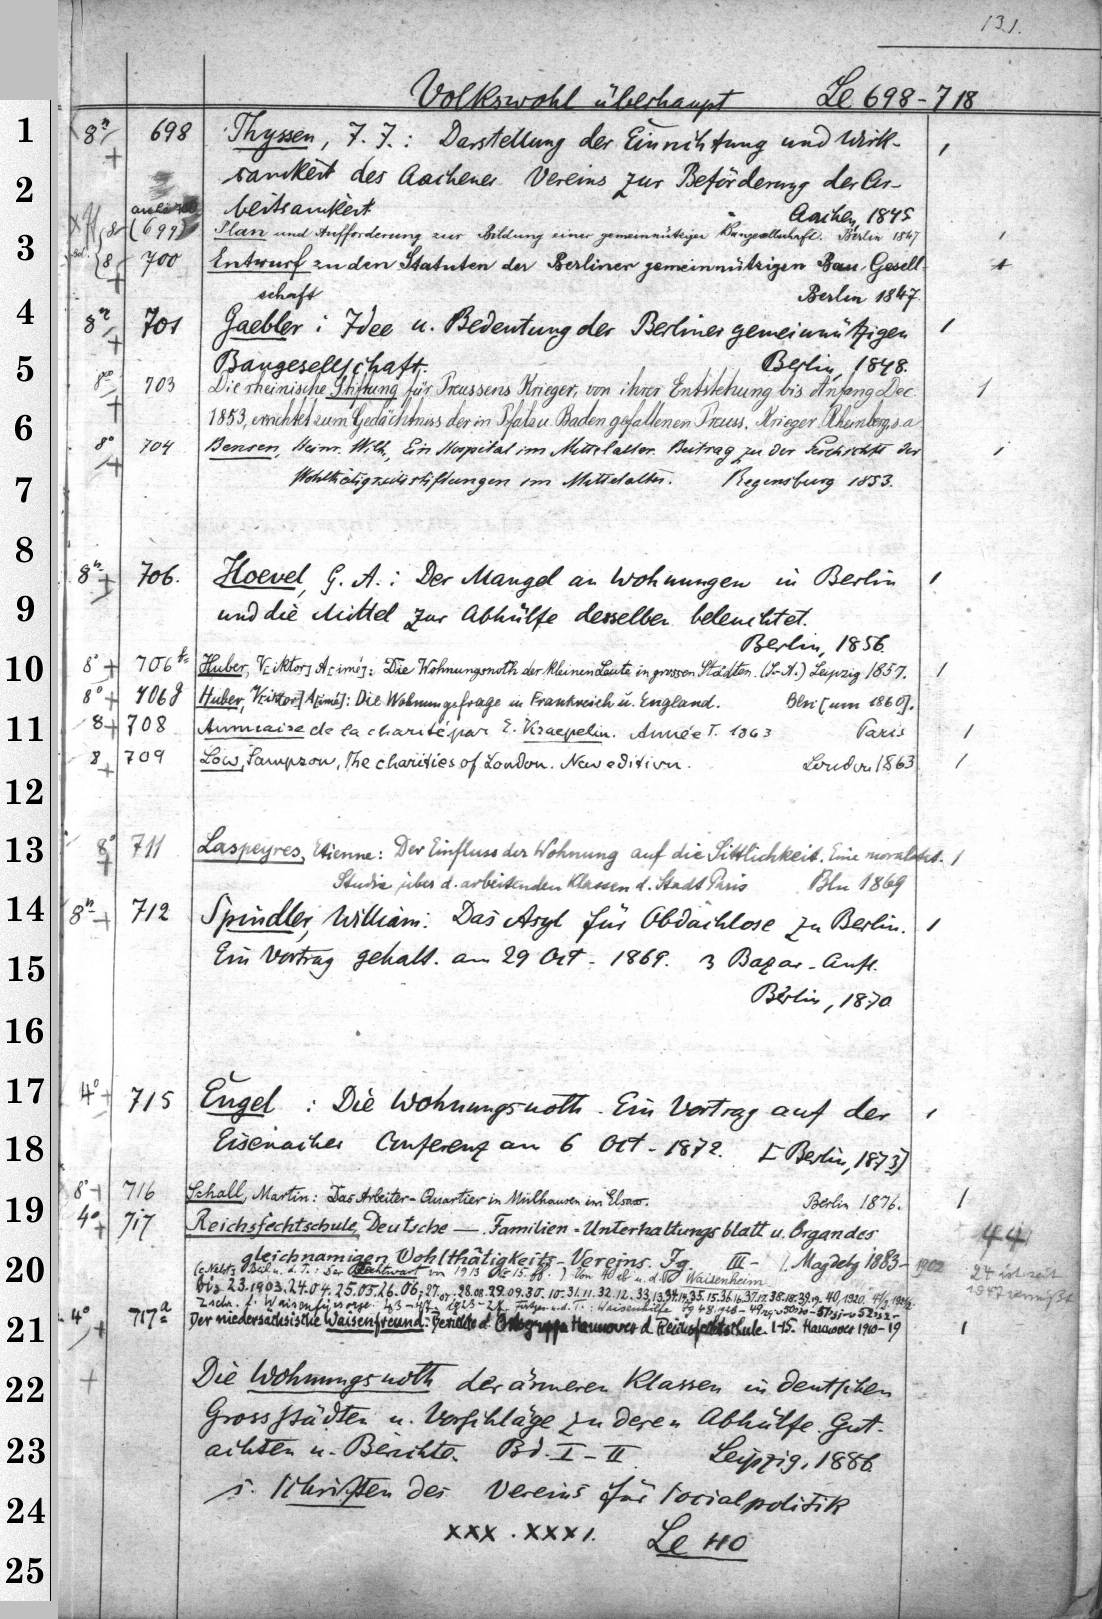 131.
Volkswohl überhaupt Le 698-718
1
8° 698 Thyssen, J. J.: Darstellung der Einrichtung und Wirk-
2
samkeit des Aachener Vereins zur Beförderung der Ar-
beitsamkeit Aachen, 1845
3
8 (699) Plan und Aufforderung zur Bildung einer gemeinnützigen Baugesellschaft. Berlin 1847
8 700 Entwurf zu den Statuten der Berliner gemeinnützigen Bau-Gesell-
schaft Berlin 1847.
4
701 Gaebler: Idee u. Bedeutung der Berliner gemeinnützigen
5
Baugesellschaft. Berlin, 1848.
8° 703 Die rheinische Stiftung für Preussens Krieger, von ihrer Entstehung bis Anfang Dec.
6
1853, errichtet zum Gedächtniss der in Pfalz u. Baden gefallenen Preuss. Krieger. Rheinberg s.a
8° 704 Bensen, Heinr. Wilh., Ein Hospital im Mittelalter. Beitrag zu der Geschichte der
7
Wohlthätigkeitsstiftungen im Mittelalter. Regensburg 1853.
8
706. Hoevel, G. A.: Der Mangel an Wohnungen in Berlin
9
und die Mittel zur Abhülfe desselben beleuchtet.
Berlin, 1856.
10
8° + 706 Huber, V[iktor] A[imé]: Die Wohnungsnoth der kleinen Leute in grossen Städten. (S.-A.) Leipzig 1857.
8° + 706g Huber, V[iktor] A[imé]: Die Wohnungsfrage in Frankreich u. England. Bln [um 1860].
11
8 + 708 Annuaire de la charité par E. Kraepelin. Année I. 1863 Paris
8 + 709 Low, Sampson, The charities of London. New edition. London 1863
12
13
8° 711 Laspeyres, Etienne: Der Einfluss der Wohnung auf die Sittlichkeit. Eine moralstat.
Studie über d. arbeitenden Klassen d. Stadt Paris Bln 1869
14
712 Spindler, William: Das Asyl für Obdachlose zu Berlin.
15
Ein Vortrag gehalt. am 29 Oct. 1869. 3 Bazar-Aufl.
Berlin, 1870
16
17
4° + 715 Engel : Die Wohnungsnoth. Ein Vortrag auf der
18
Eisenacher Conferenz am 6 Oct. 1872. [Berlin, 1873]
19
8° + 716 Schall, Martin: Das Arbeiter-Quartier in Mülhausen im Elsass. Berlin 1876.
4° + 717 Reichsfechtschule, Deutsche — . Familien-Unterhaltungsblatt u. Organ des 44
20
gleichnamigen Wohlthätigkeits-Vereins. Jg. III- Magdebg 1883-1902
24 ist seit
1947 vermisst
21
4° + 717a Der niedersächsische Waisenfreund: Berichte d. Ortsgruppe Hannover d. Reichsfechtschule. 1-15. Hannover 1910-19
22
+ Die Wohnungsnoth der ärmeren Klassen in deutschen
Grossstädten u. Vorschläge zu deren Abhülfe. Gut-
23
achten u. Berichte. Bd. I-II. Leipzig, 1886.
24
s. Schriften des Vereins für Socialpolitik
XXX. XXXI. Le 110
25